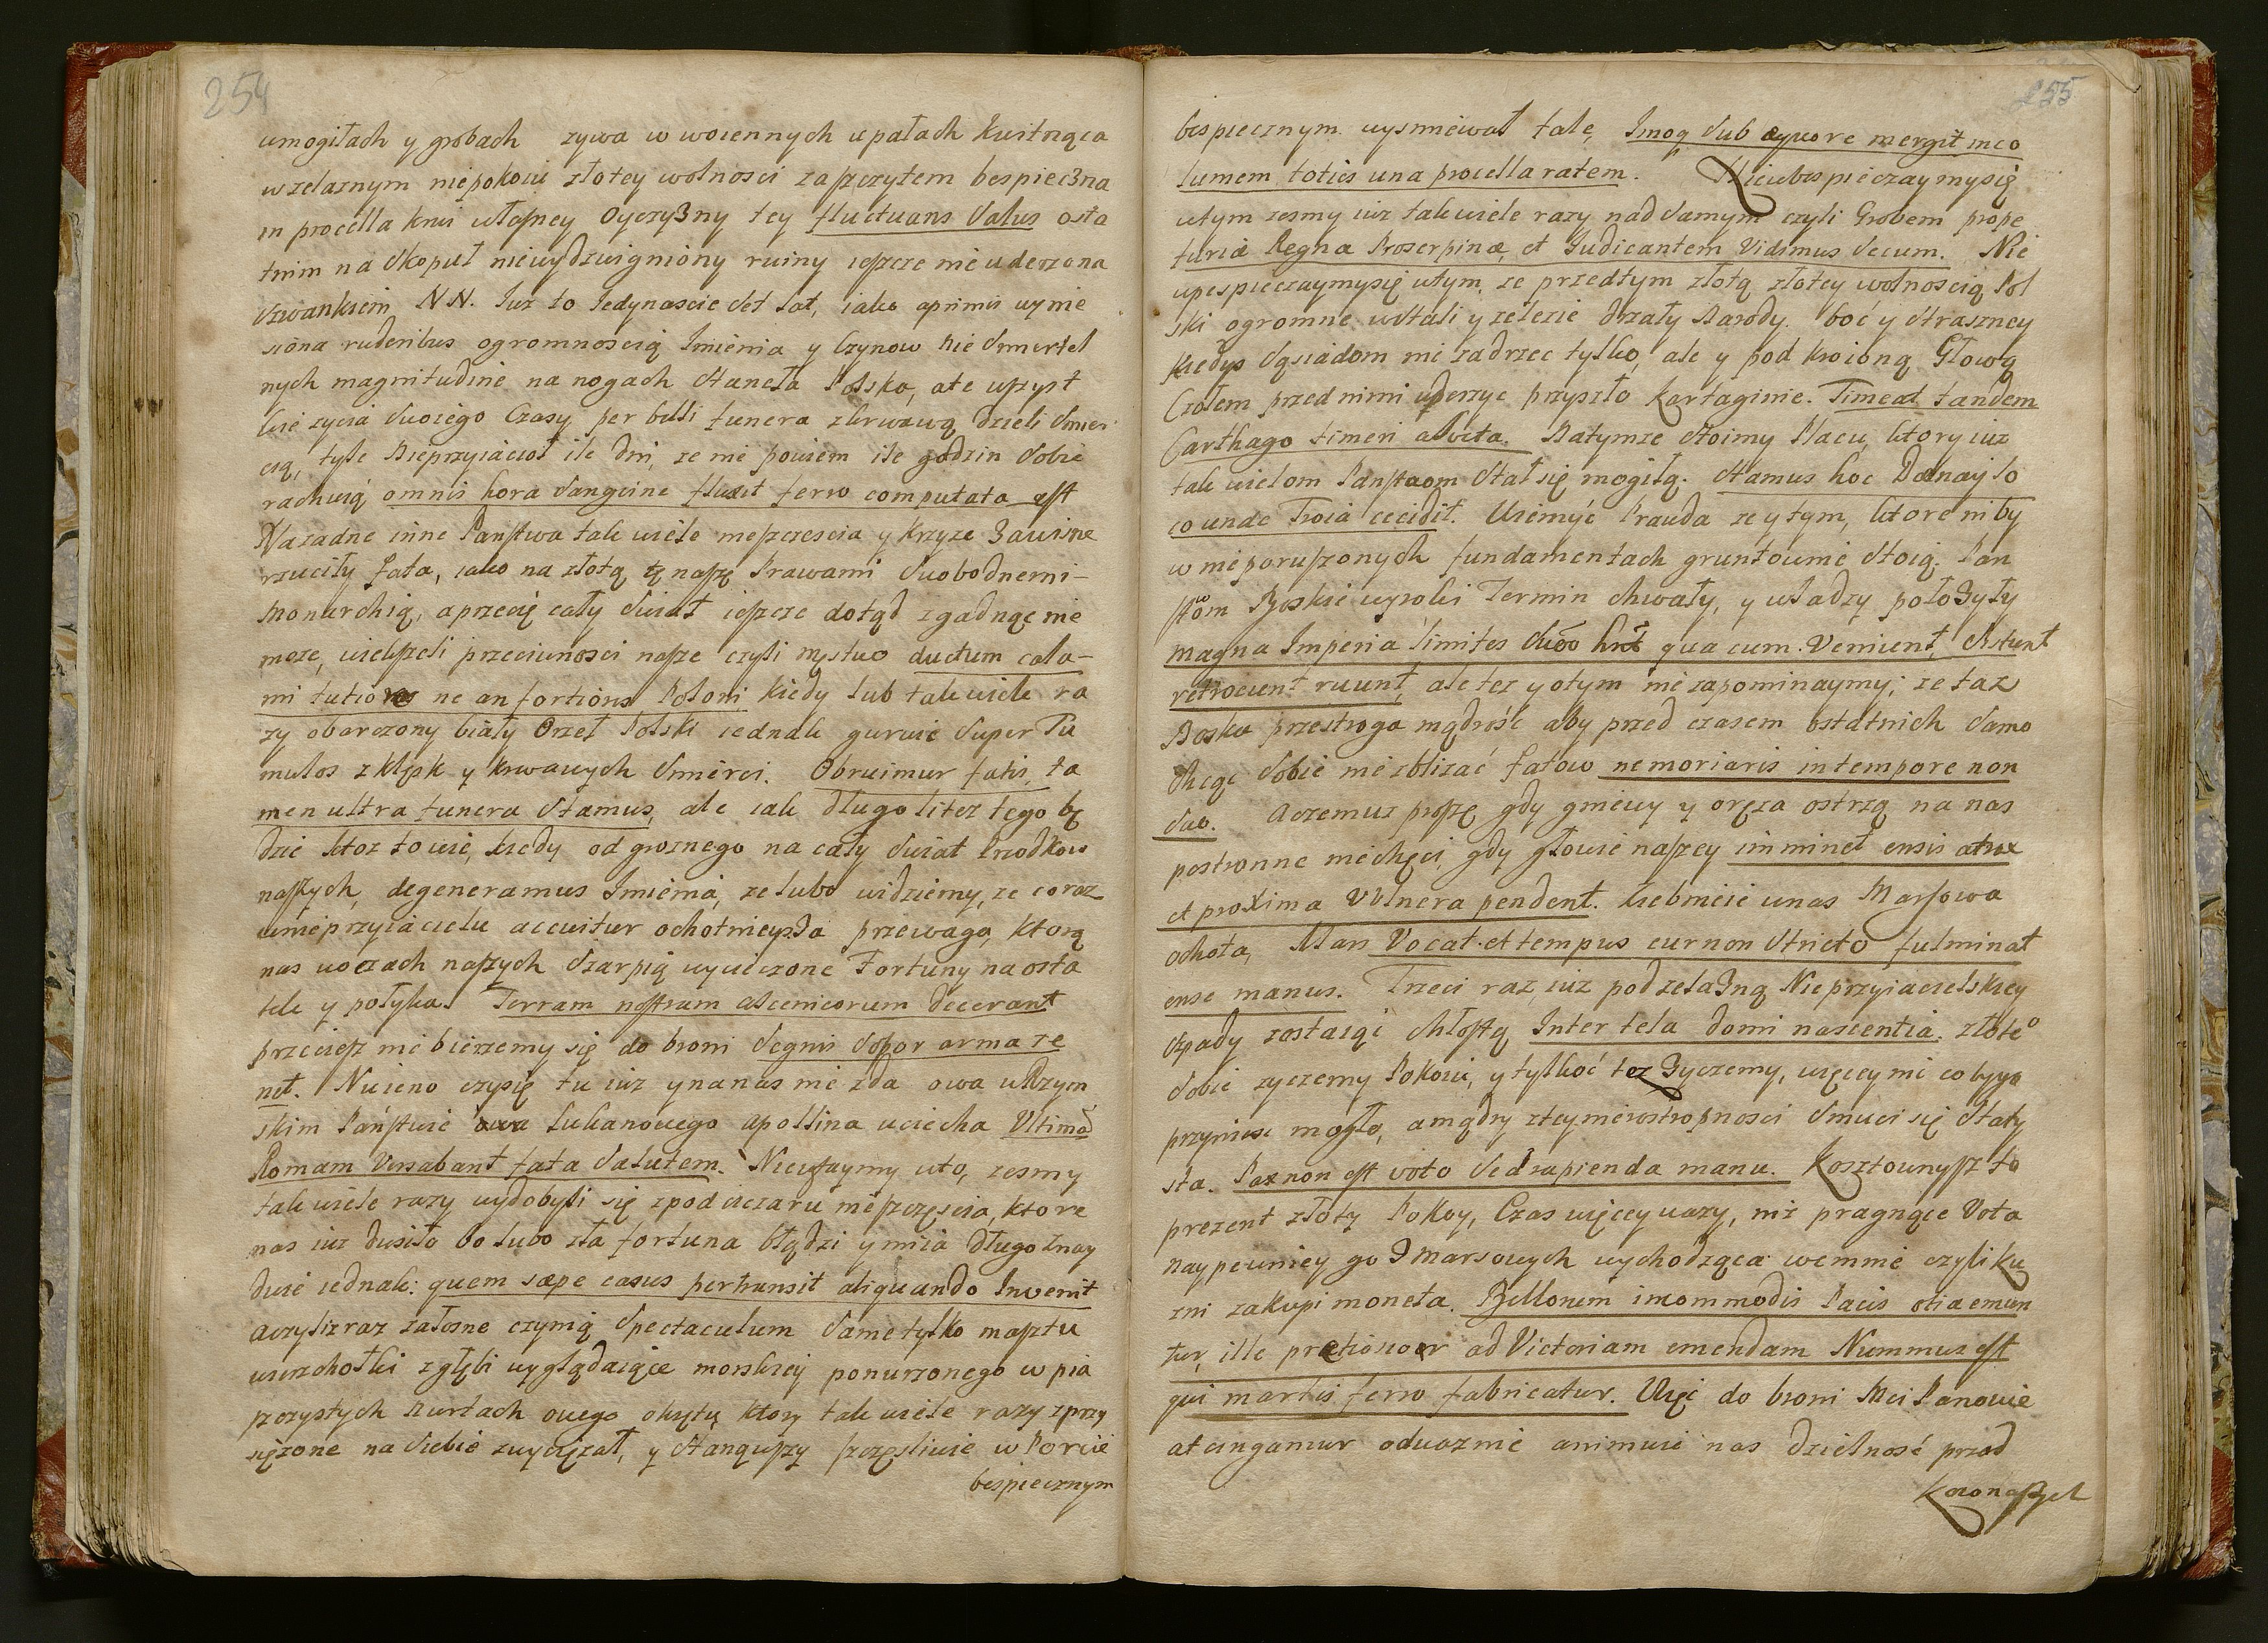 254
umogiłach y grobach zywa w woiennych upałach kwitnąca
w zelaznym niepokoiu złotey wolnosci zaszczytem bespieczna
in procella krwi własney Oyczyzny tey fluctuans Salus osta
tnim na Skopuł niewydzwigniony ruiny ieszcze nie uderzona
szwankiem NN. Iuz to Iedynascie Set lat, iako a primis wynie
siona ruderibus ogromnoscią Imienia y Czynow nie Smiertel
nych magnitudine na nogach Stanęła Polska, ale wszyst
kie zycia Swoiego Czasy per belli funera z krwawą dzieli Smier
cią, tyle Nieprzyiacioł ile dni, ze nie powiem ile godzin Sobie
rachuią omnis hora Sangvine fluxit ferro computata est
Na zadne inne Panstwa tak wiele nieszczescia y krzyze Zawisne
rzuciły fata, iako na złotą tę naszę Prawami Swobodnemi-
Monarchią, a przecię cały Swiat ieszcze dotąd zgadnąc nie
moze, wiekszeli przeciwnosci nasze czyli męstwo ductum cala-
mi tutiores ne an fortiores Poloni kiedy lub tak wiele ra
zy obarczony biały Orzeł Polski iednak guruie Super Tu
mulos z klęsk y krwawych Smierci. Obruimur fatis, ta
men ultra funera Stamus, ale iak długo li tez tego bę
dzie ktoz to wie, kiedy od groznego na cały Swiat Przodkow
naszych, degeneramus Imienia, ze lubo widziemy, ze coraz
u nieprzyiacielu accuitur ochotnieysza przewaga, ktorą
nas w oczach naszych Szarpią wywiczone Fortuny na osta
tek y połyka. Terram nostram alienieorum decerant
przeciesz nie bierzemy się do broni Segnis Sopor arma te
net. Nuieno czysię tu iuz y na nas nie zda owa w Rzym
skim Państwie Lukanowego apollina uciecha Ultima
Romam versabant fata Salutem. Nieufaymy w to, zesmy
tak wiele razy wydobyli się z pod ciezaru nieszczęscia, ktore
nas iuz dusiło Bo lubo zła fortuna błądzi y mija długo znay
duie iednak: quem sæpe casus pertransit aliquando Invenit
a czyliz raz załosne czynią Spectaculum Same tylko masztu
wierzchołki z głębi wyglądaiące morskiey ponurzonego w pia
szczystych Nurtach owego okrętu ktory tak wiele razy sprzy
siężone na Siebie zwyciężał, y Stanąwszy szczęsliwie w Porcie
bespiecznym
255
bespiecznym wysmiewał falę, Imoq sub æquore mergit inco
lumem toties una procella ratem. Nieubespieczaymysię
w tym zesmy iuz tak wiele razy nad Samym czyli Grobem prope
furiæ Regna Proserpinæ, et Iudicantem Vidimus Æacum. Nie
upespieczaymysię w tym, ze przedtym złotą złotey wolnoscią Pol
ski ogromne w Stali y zelezie drzały Narody. boć y Straszney
kiedys Sąsiadom nie zadrzec tylko, ale y pod kroioną Głową
Czołem przed nimi uderzyc przyszło Kartaginie. Timeat tandem
Carthago timeri assveta. Na tymze Stoimy Placu, ktory iuz
tak wielom Panstwom Stał się mogiłą. Stamus hoc Danay lo
co unde Troia cecidit. Usiemyć Prawda ze y tym, ktore niby
w nieporuszonych fundamentach gruntownie Stoią, Pan
stwom Boskie wyroki Termin chwały, y władzy położyły
magna Imperia limites suos hnt qua cum. Venient, Astunt
retrocunt ruunt, ale tez y o tym nie zapominaymy; ze taz
Boska przestroga mądrość aby przed czasem ostatnich Samo
chcąc Sobie nie zblizać fatow ne moriaris in tempore non
Suo. A czemuz proszę gdy gniewy y oręza ostrzą na nas
postronne niechęci, gdy głowie naszey imminet ensis atrox
et proxima Vulnera pendent. Krebnieie u nas Marsowa
ochota, Mars Vocat et tempus cur non Stricto fulminat
ense manus. Trzeci raz iuz pod zelazną Nieprzyiacielskiey
szpady zostaiąc chłostą Inter tela domi nascentia. złote°
Sobie zyczemy Pokoiu, y tylkoć tez Zyczemy, więcey nic coby go
przyniesc mogło, a mądry z tey nieostropnosci Smuci się Staty
sta. Pax non est voto Sed rapienda manu. Kosztownyssz to
prezent złoty Pokoy, Czas więcey wazy, niz pragnące Vota
naypewniey go z Marsowych wychodząca wemmie czyli ku
zni zakupi moneta. Bellorum incommodis Pacis otia emun
tur, ille pretiosior ad Victoriam emendam Nummus est
qui martis ferro fabricatur. Więc do broni Mci Panowie
accingamur odwaznie animuie nas dzielnosć przod
kow naszych